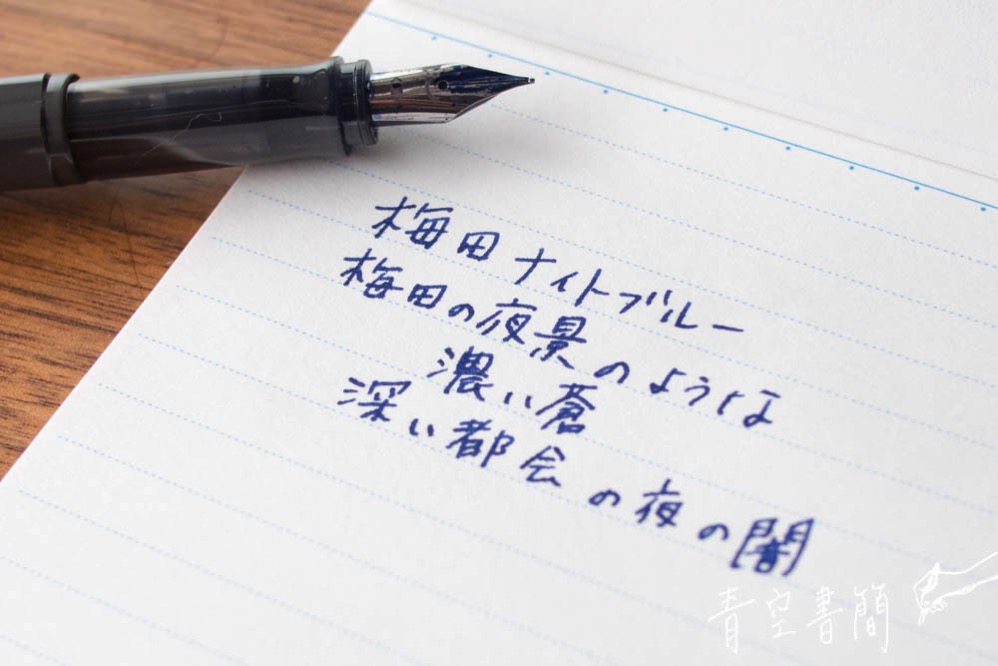 梅田ナイトブルー
梅田の夜景のような
濃い蒼
深い都会の夜の闇
青空書簡